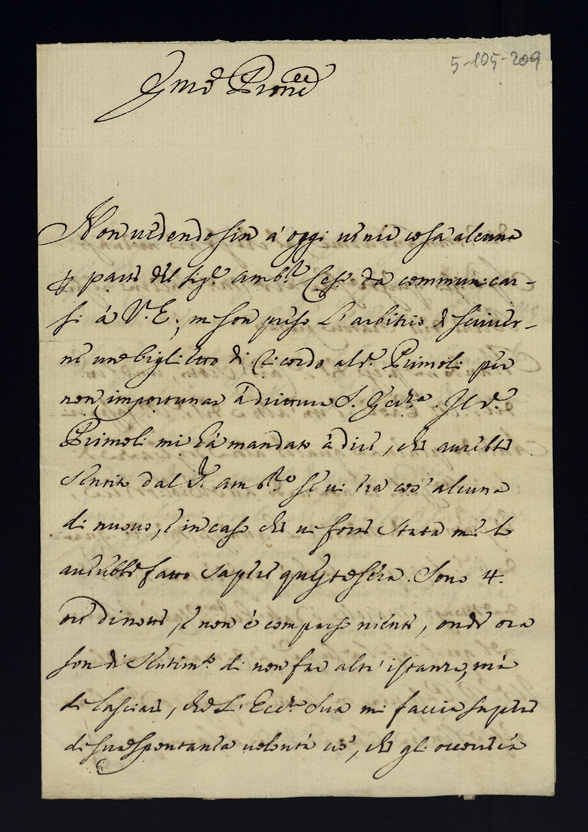 5-105-209
Em.o Prone
Non vedendo sin à oggi venir cosa alcuna
p parte del sig.r Amb.r Ces.o da communicar-
si à V. E., mi son preso l'arbitrio di scriver-
ne un biglietto di ricordo al d.o Primoli per
non importunar à drittura S. Ecc.za. Il d.o
Primoli mi hà mandato à dire, che avrebbe
sentito dal S.r Amb.re se vi era cos' alcuna
di nuovo, e in caso che vi fosse stata me lo
averebbe fatto sapere questa sera. Sono 4.
ore di notte, e non è comparso niente, onde ora
son di sentim.to di non far altr' istanza, mà
di lasciare, che l' Ecc.za Sua mi faccia sapere
di sua spontanea volontà ciò, che gli occorrerà